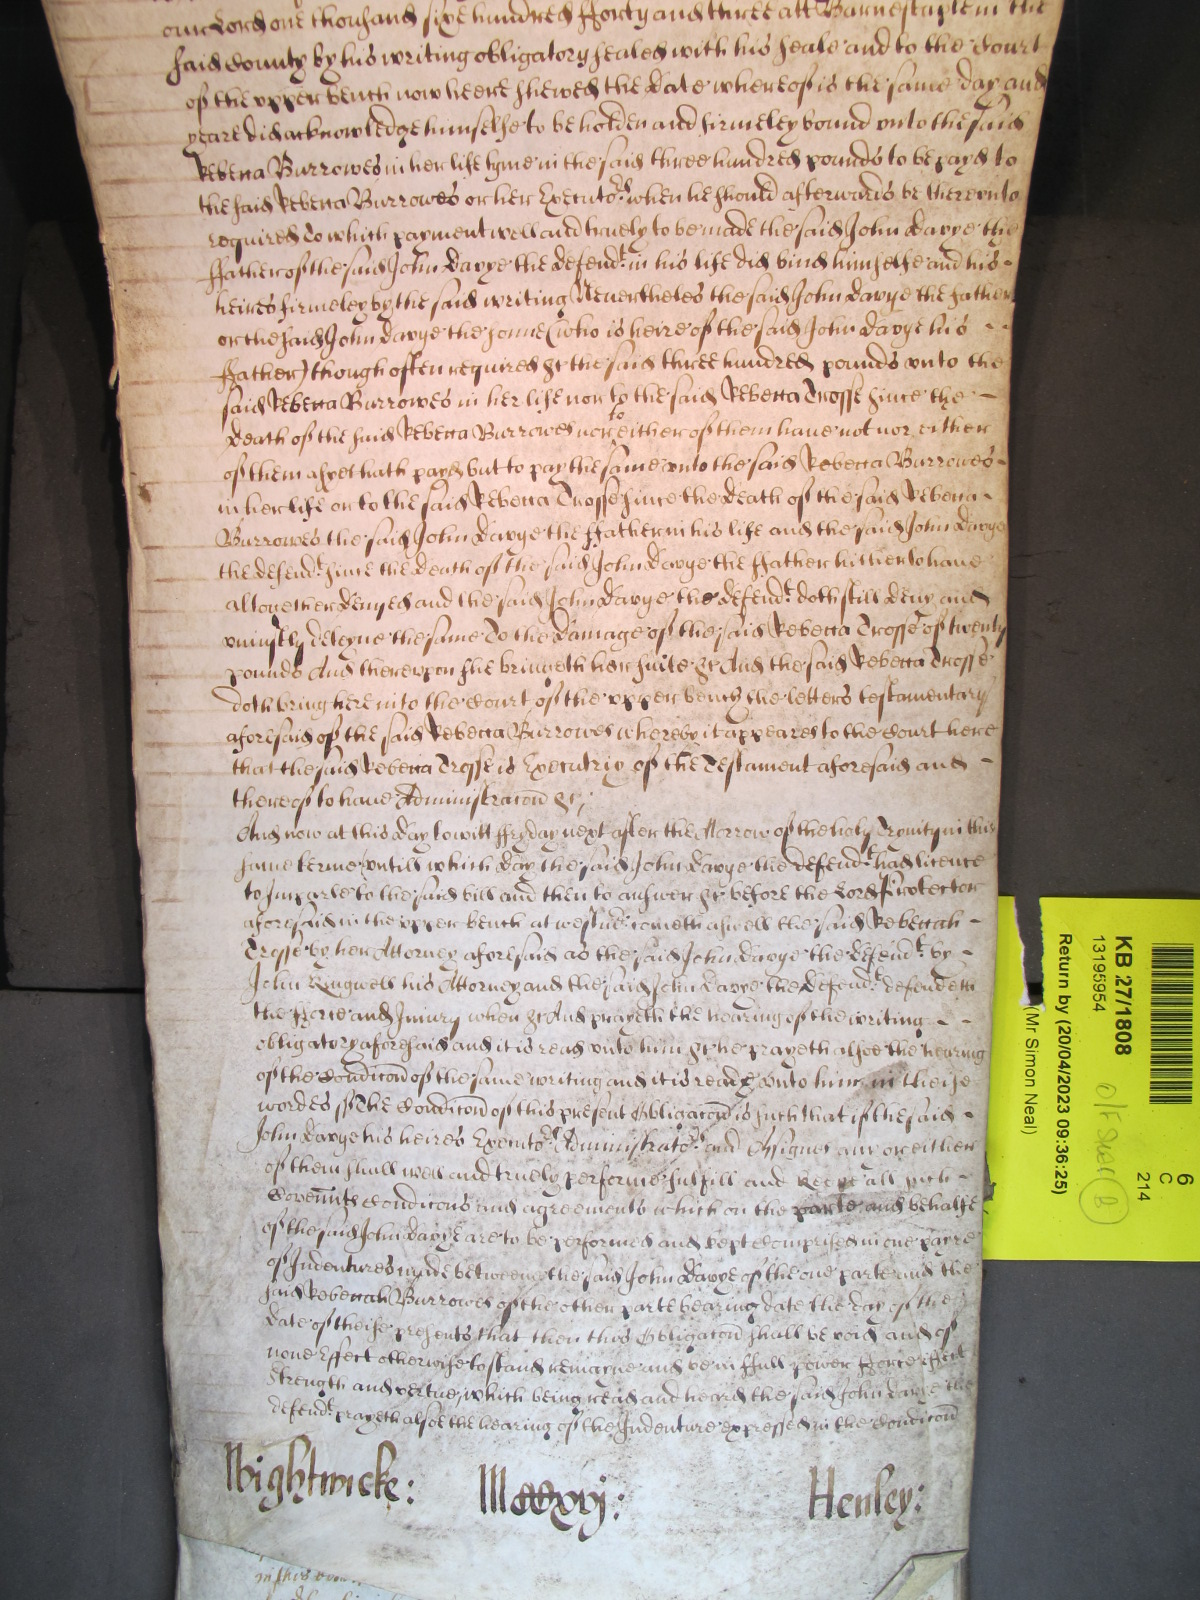 our Lord one thousand sixe hundred fforty and three att Barnestaple in the
said County by his writing obligatory sealed with his seale and to the Court
of the upper bench now heere shewed the date whereof is the same day and
yeare did acknowledge himselfe to be holden and firmeley bound unto the said
Rebecca Burrowes in her life tyme in the said three hundred pounds to be payd to
the said Rebecca Burrowes or her Executors when he should afterwards be thereunto
required To which payment well and truely to be made the said John Davye the
ffather of the said John Davye the defendt in his life did bind himselfe and his
heires firmeley by the said writing Neverthelesse the said John Davye the father
or the said John Davye the sonne (who is heire of the said John Davye his
ffather) though often required &c the said three hundred pounds unto the
said Rebecca Burrowes in her life nor to the said Rebecca Trosse since the
death of the said Rebecca Burrowes nor to either of them have not nor either
of them as yet hath payd but to pay the same unto the said Rebecca Burrowes
in her life or to the said Rebecca Trosse since the death of the said Rebecca
Burrowes the said John Davye the ffather in his life and the said John Davye
the defendt since the death of the said John Davye the ffather hitherto have
altogether denyed and the said John Davye the defendt doth still deny and
uniustly deteyne the same To the damage of the said Rebecca Trosse of twenty
pounds And thereupon she bringeth her suite &c And the said Rebecca Trosse
doth bring here into the Court of the upper bench the letters testamentary
aforesaid of the said Rebecca Burrowes whereby it appeares to the Court here
that the said Rebecca Trosse is Executrix of the Testament aforesaid and
thereof to have Administracon &c;
And now at this day to witt ffryday next after the Morrow of the holy Trinity in this
same terme untill which day the said John Davye the defendt had licence
to Imparle to the said bill and then to answer &c before the Lord Protector
aforesaid in the upper bench at westmr cometh aswell the said Rebeccah
Trosse by her Attorney aforesaid as the said John Davye the defendt by
John Ringwell his Attorney and the said John Davye the defendt defendeth
the fforce and Iniury when &c And prayeth the hearing of the writing
obligatory aforesaid and it is read unto him &c he prayeth alsoe the hearing
of the Condicon of the same writing and it is read unto him in theise
wordes ss The Condicon of this present Obligacon is such that if the said
John Davye his heires Executors Administrators and Assignes any or either
of them shall well and truely performe fulfill and keepe all such
Covennts Condicons and agreements which on the parte and behalfe
of the said John Davye are to be performed and kept Comprised in one payre
of Indentures made betweene the said John Davye of the one parte and the
said Rebeccah Burrowes of the other parte bearing date the day of the
date of theise presents that then this Obligacon shall be void and of
none Effect otherwise to stand remaine and be in full power fforce effect
strength and vertue, which being read and heard the said John Davye the
defendt prayeth alsoe the hearing of the Indenture expressed in the Condicon
Wightwicke:
Henley:
in this
KB 27/1808
13195954
Return by (20/04/2023 09:36:25)
(Mr Simon Neal)
6
C
214